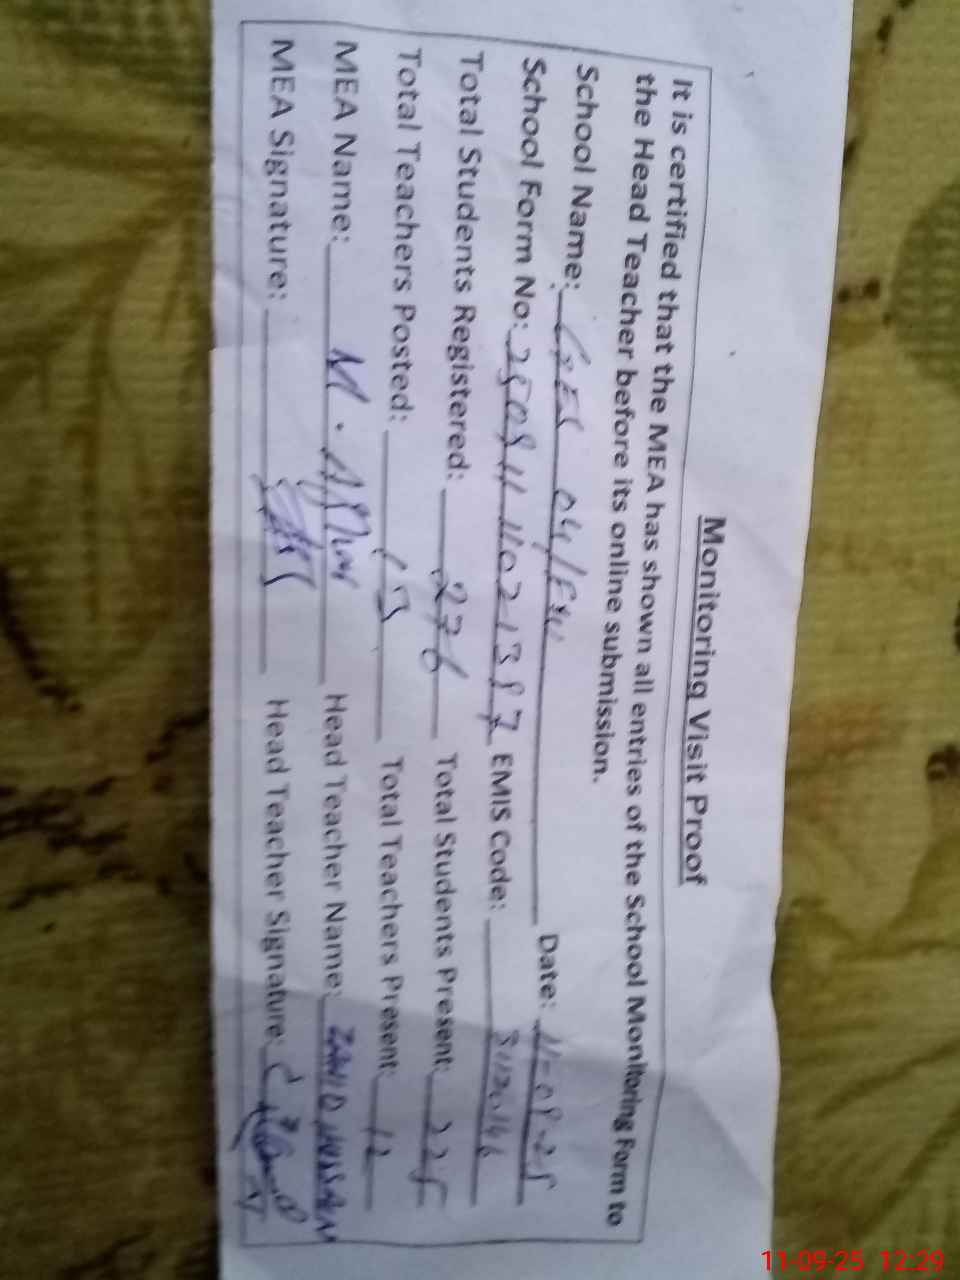 Monitoring Visit Proof
It is certified that the MEA has shown all entries of the School Monitoring Form to
the Head Teacher before its online submission.
School Name: GES 04/FW Date: 11-09-25
School Form No: EMIS Code:
Total Students Registered: 276 Total Students Present: 225
Total Teachers Posted: 13 Total Teachers Present: 12
MEA Name: M. Head Teacher Name: ZAHID HUSSAIN
MEA Signature: Head Teacher Signature:
11-09-25 12:29